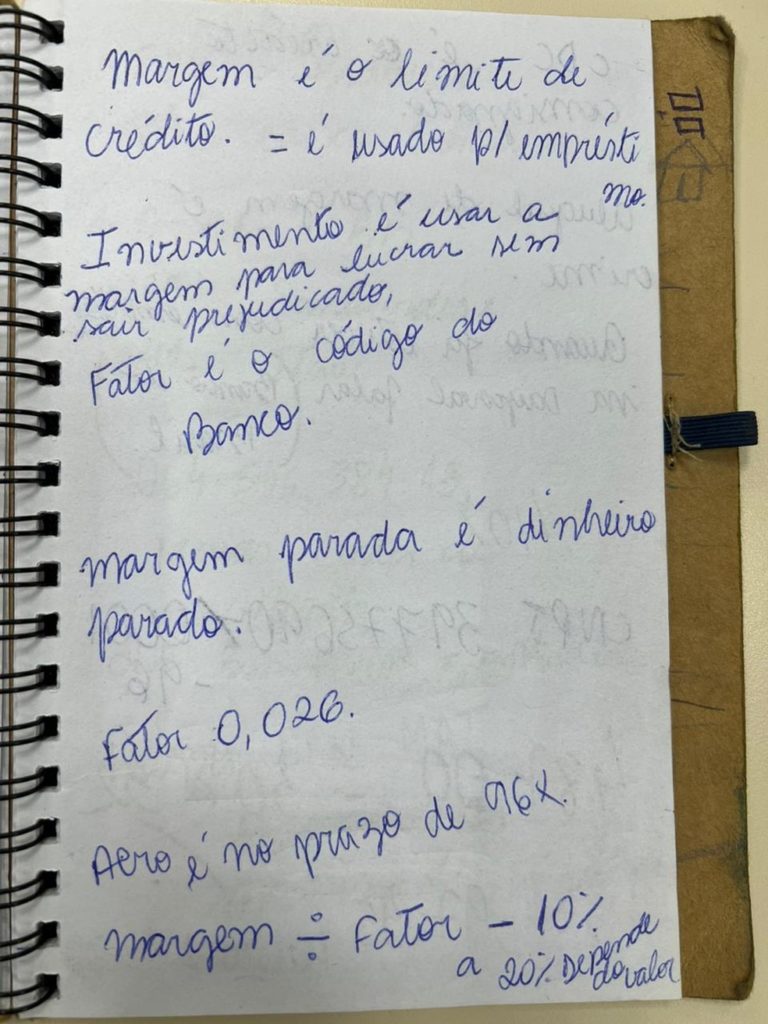 Margem é o limite de
crédito. = é usado p/ emprésti
mo.
Investimento é usar a
margem para lucrar sem
sair prejudicado,
Fator é o código do
Banco.
Margem parada é dinheiro
parado.
Fator 0,026.
Aero é no prazo de 96x.
Margem ÷ Fator - 10%
a 20% Depende
do valor